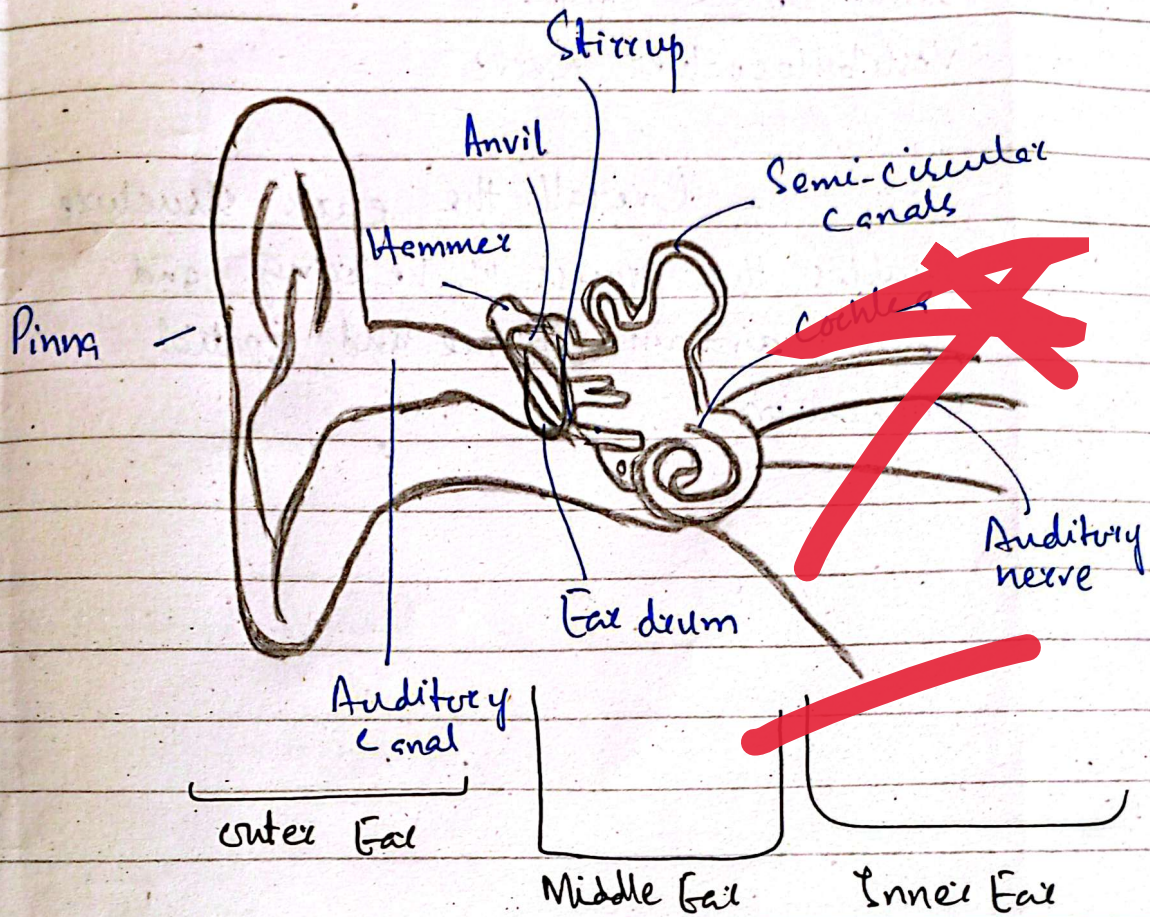 Stirrup
Anvil
Semi-circular
Canals
Hemmer
Cochlea
Pinna
Auditory
nerve
Ear drum
Auditory
Canal
outer Ear
Middle Ear
Inner Ear